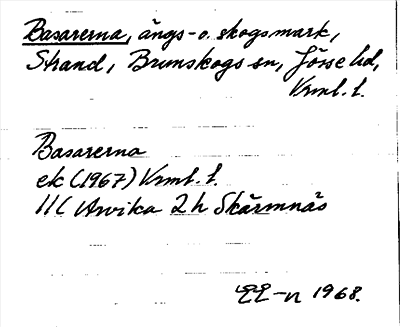 Basarerna, ängs- o. skogsmark,
Strand, Brunskogs sn, Jösse hd,
Vrml. l.
Basarerna
ek (1967) Vrml. l.
11C Arvika 2h Skärmnäs
1968.